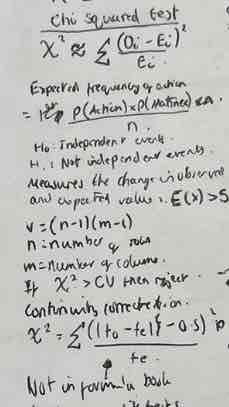 chi squared test
χ² ≈ Σ (Oi - Ei)²
Ei
Expected frequency of action
= P(Action) × P(Matinee)
n
H₀: Independent events.
H₁: Not independent events.
Measures the change in observed
and expected value. E(x) > 5
v = (n-1)(m-1)
n: number of rows
m = number of columns.
If χ² > CV then reject.
Continuity correction.
χ² = Σ (|fo - fe| - 0.5)²
fe
Not in formula book